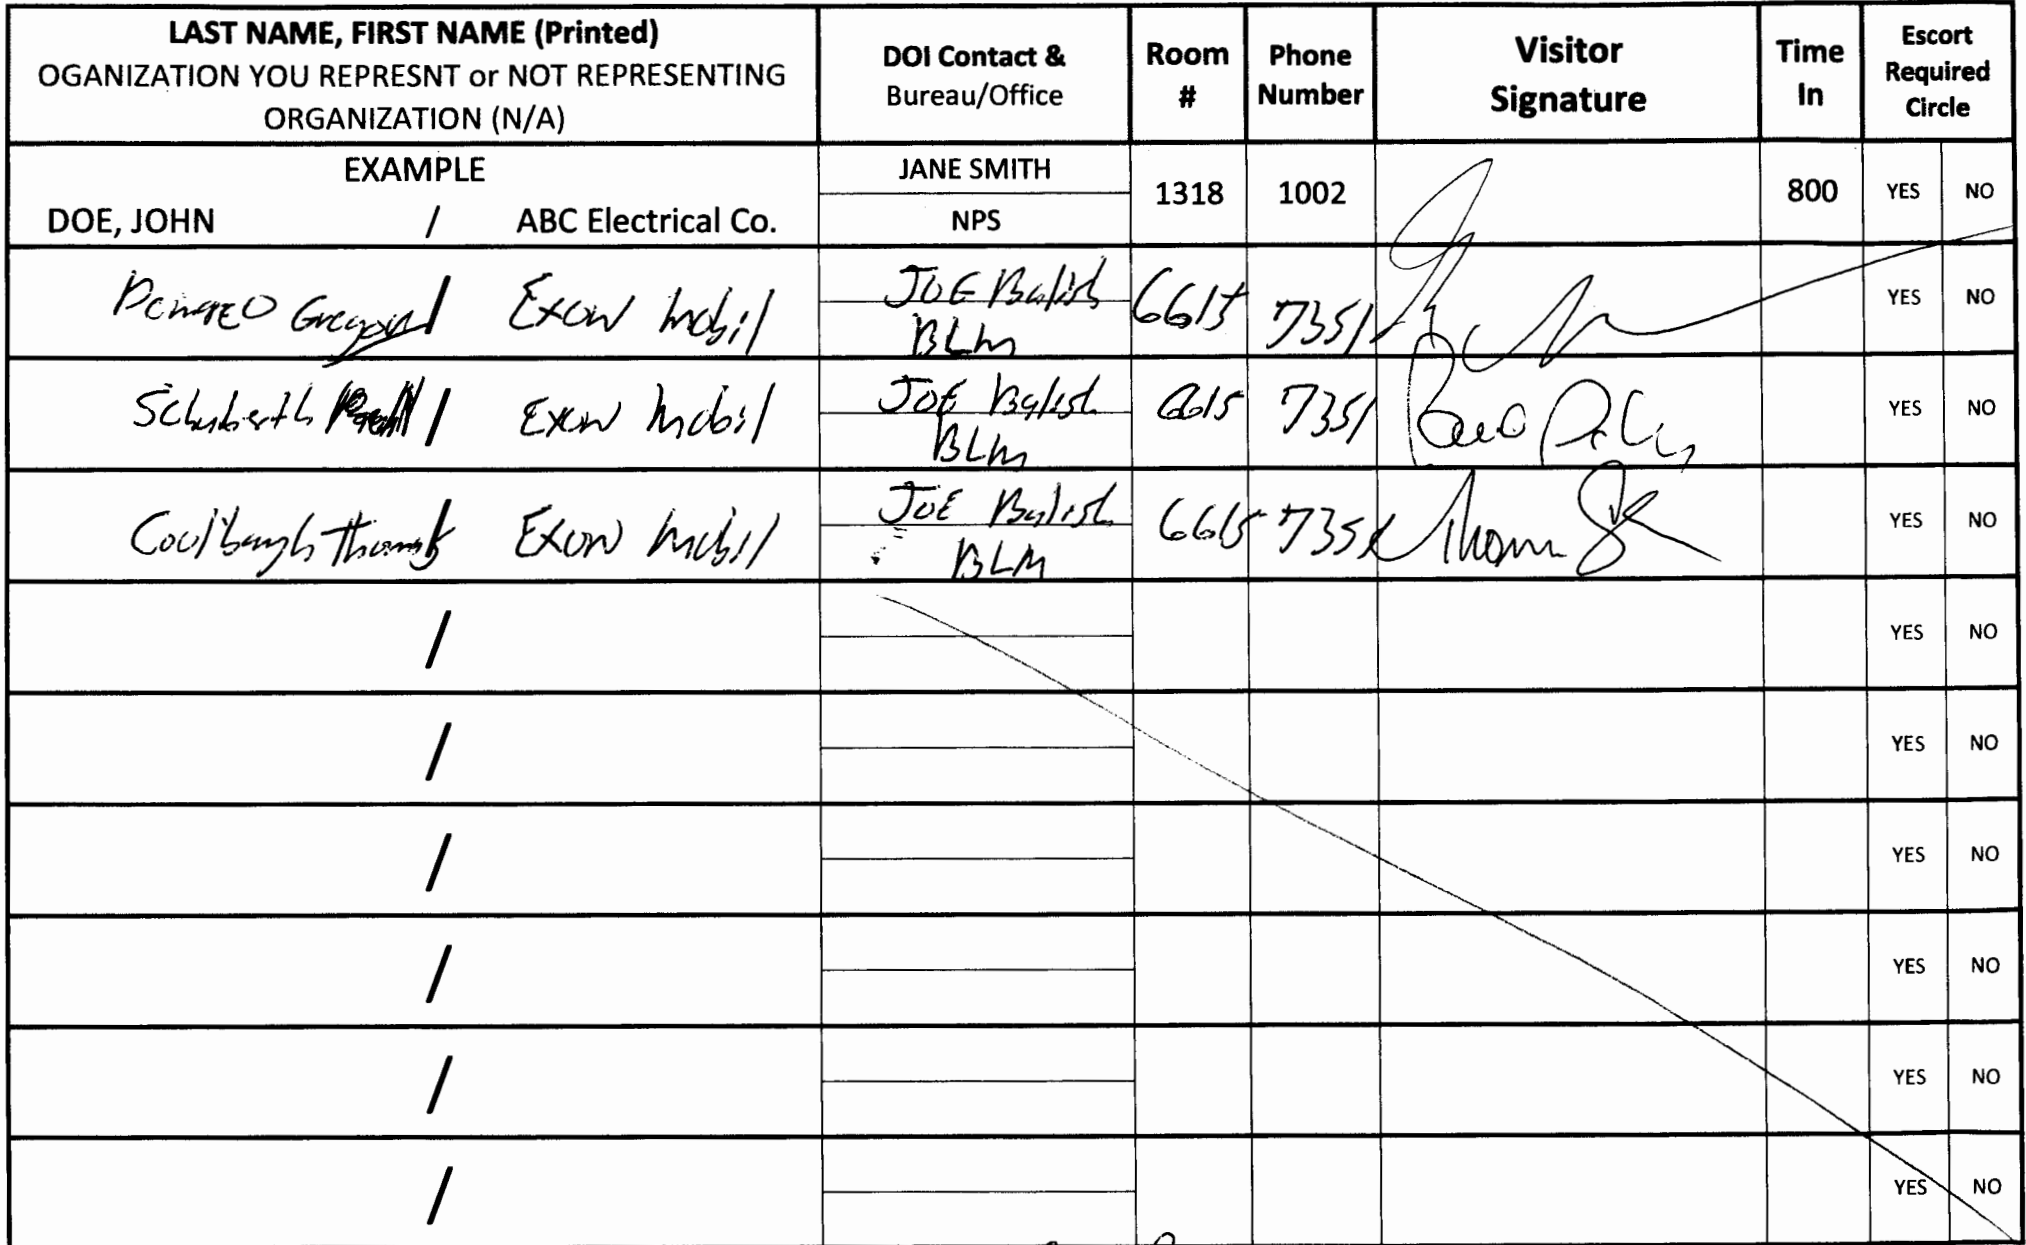 LAST NAME, FIRST NAME (Printed)
OGANIZATION YOU REPRESNT or NOT REPRESENTING
ORGANIZATION (N/A)
DOI Contact &
Bureau/Office
Room
#
Phone
Number
Visitor
Signature
Time
In
Escort
Required
Circle
EXAMPLE
DOE, JOHN / ABC Electrical Co.
JANE SMITH
NPS
1318 1002 800 YES NO
Gregory / Exon Mobil
JOE Balish
BLM
6615 7351 YES NO
Schuberth / Exon Mobil
JOE Balish
BLM
6615 7351 YES NO
Coolbaugh Thomas / Exon Mobil
JOE Balish
BLM
6615 7351 YES NO
/ YES NO
/ YES NO
/ YES NO
/ YES NO
/ YES NO
/ YES NO